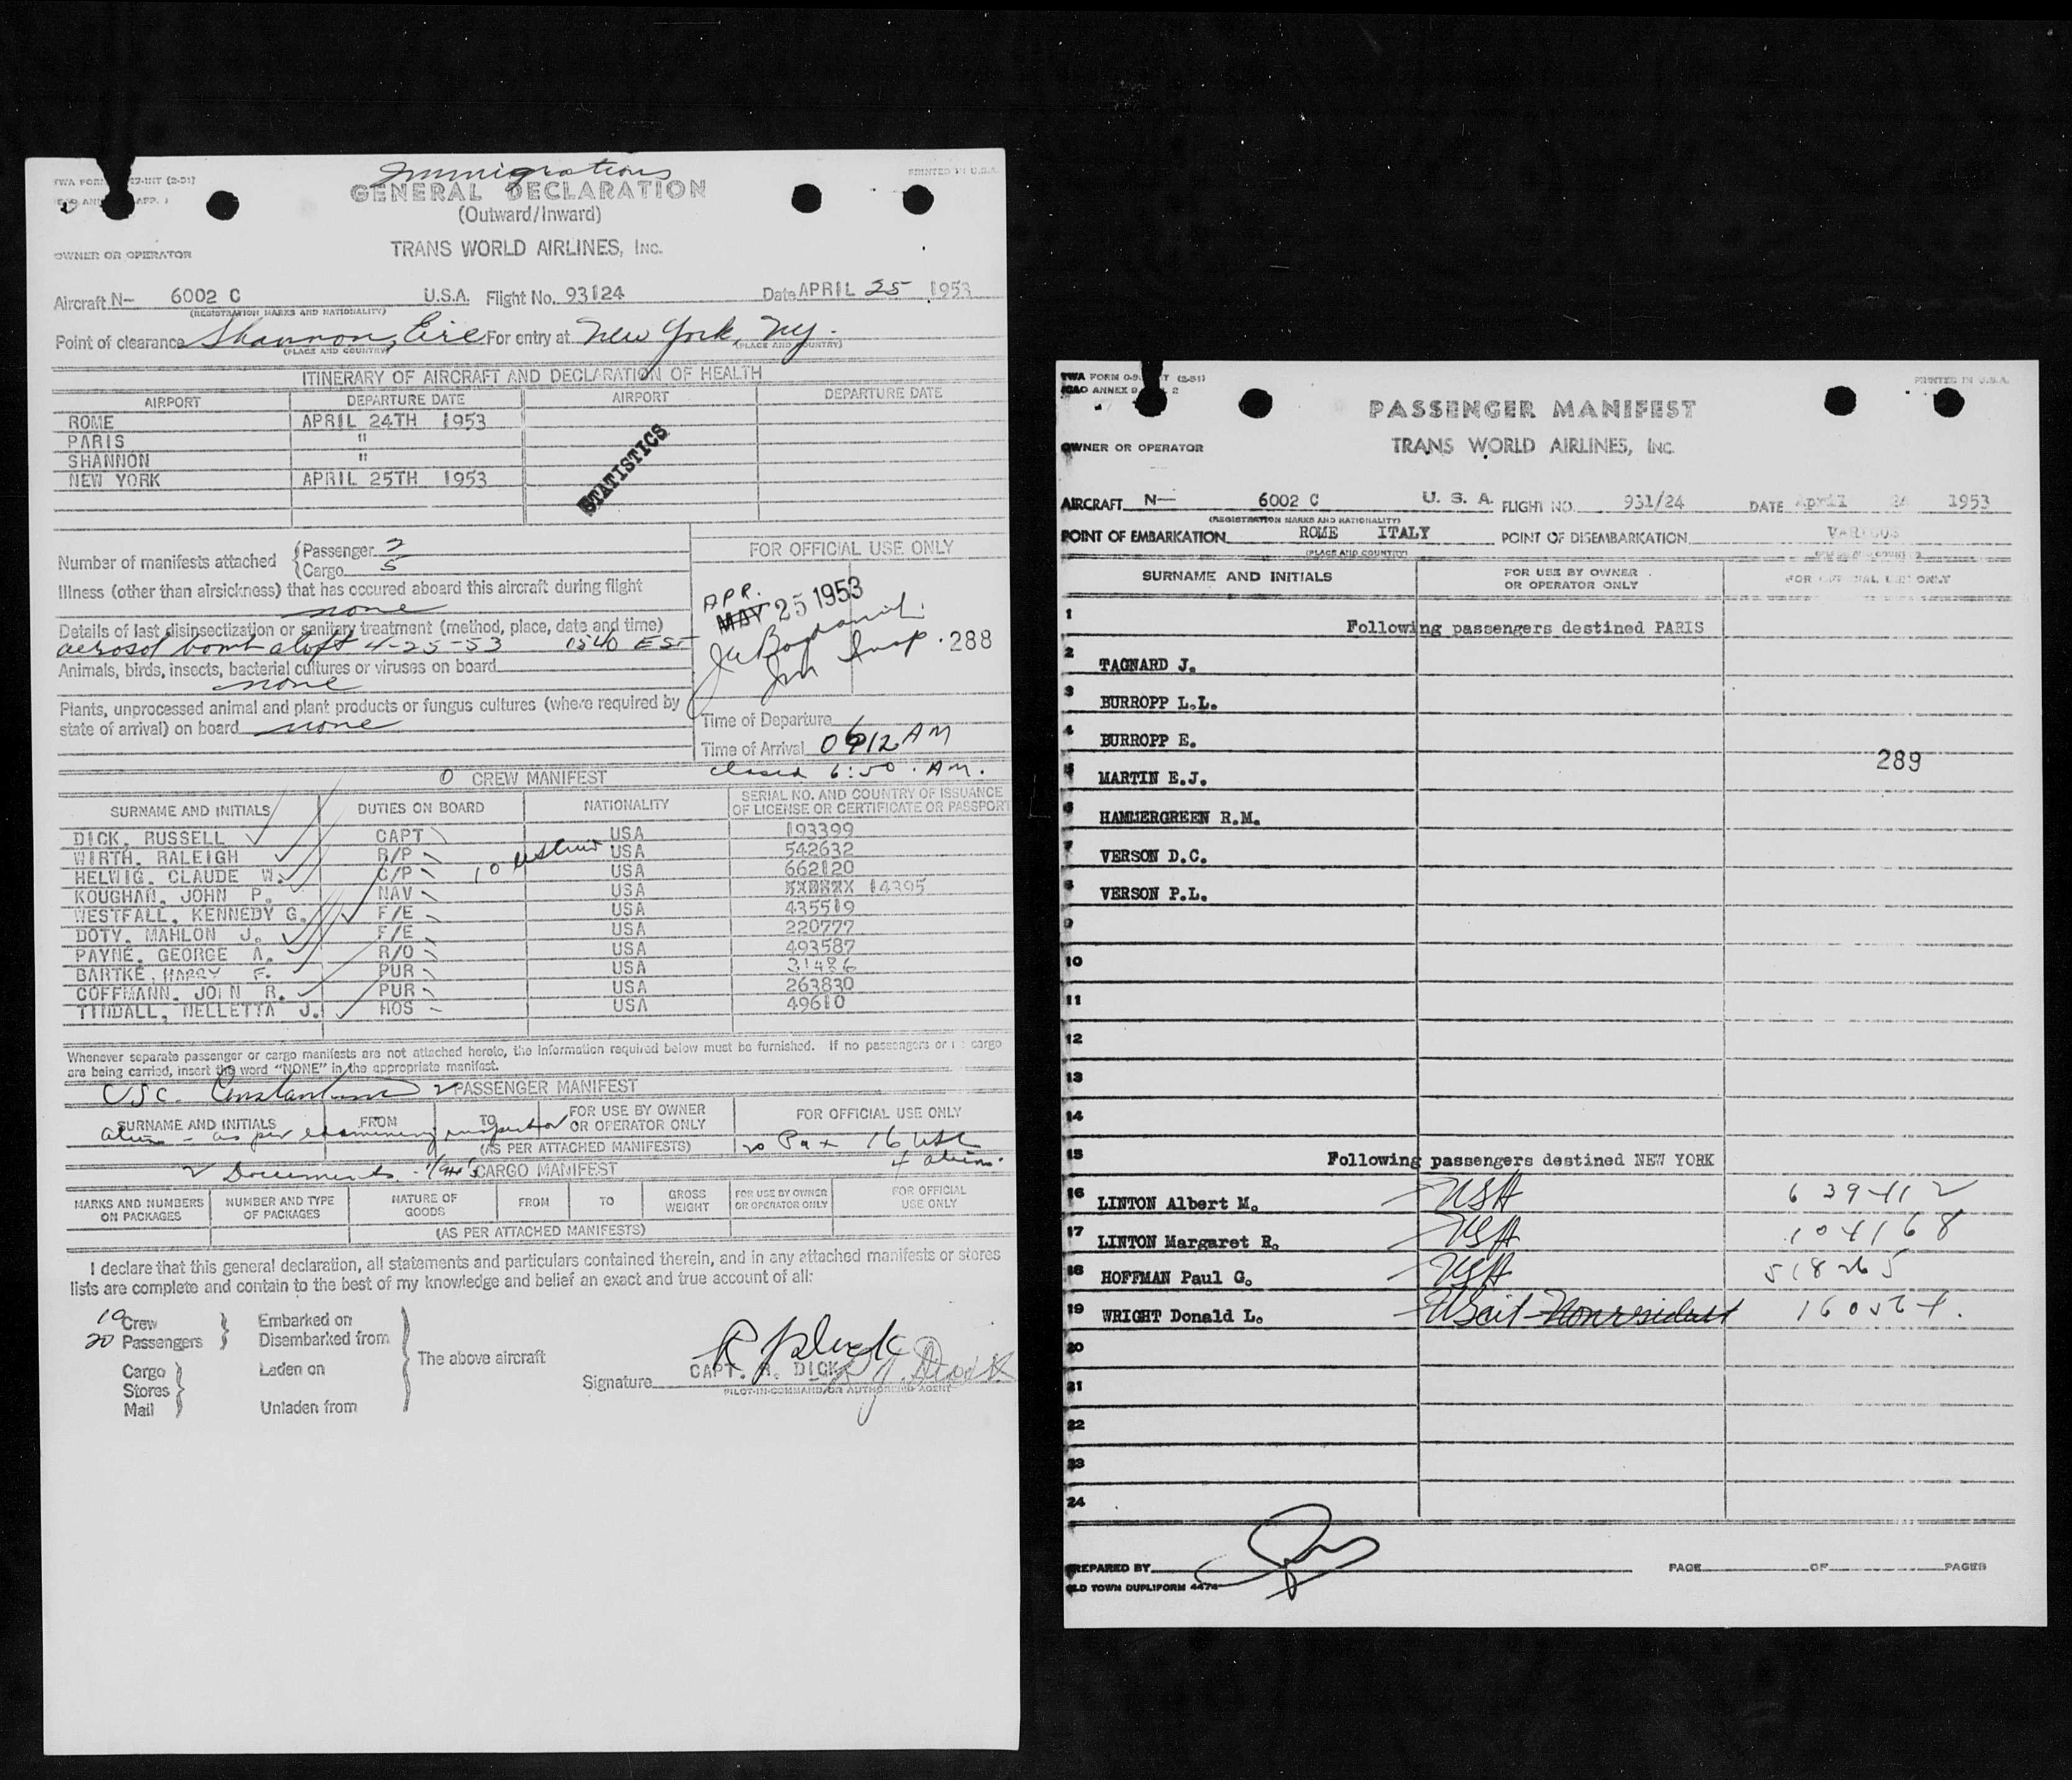 TWA FORM 27-INT (2-51)
PRINTED IN U.S.A.
Immigrations
GENERAL DECLARATION
(Outward/Inward)
OWNER OR OPERATOR
TRANS WORLD AIRLINES, INC.
Aircraft N- 6002 C U.S.A. Flight No. 93124 Date APRIL 25 1953
(REGISTRATION MARKS AND NATIONALITY)
Point of clearance Shannon, Eire For entry at New York, NY.
(PLACE AND COUNTRY) (PLACE AND COUNTRY)
ITINERARY OF AIRCRAFT AND DECLARATION OF HEALTH
AIRPORT DEPARTURE DATE AIRPORT DEPARTURE DATE
ROME APRIL 24TH 1953
PARIS "
SHANNON "
NEW YORK APRIL 25TH 1953
STATISTICS
Number of manifests attached Passenger 2
Cargo 5
FOR OFFICIAL USE ONLY
Illness (other than airsickness) that has occured aboard this aircraft during flight
none
APR.
MAY 25 1953
Details of last disinsectization or sanitary treatment (method, place, date and time)
aerosol bomb aloft 4-25-53 0540 EST
288
Animals, birds, insects, bacterial cultures or viruses on board
none
Plants, unprocessed animal and plant products or fungus cultures (where required by
state of arrival) on board none
Time of Departure
Time of Arrival 0612 AM
closed 6:50 AM.
CREW MANIFEST
SURNAME AND INITIALS DUTIES ON BOARD NATIONALITY SERIAL NO. AND COUNTRY OF ISSUANCE OF LICENSE OR CERTIFICATE OR PASSPORT
DICK, RUSSELL CAPT USA 193399
WIRTH, RALEIGH R/P USA 542632
HELWIG, CLAUDE W. C/P USA 662120
KOUGHAN, JOHN P. NAV USA 14395
WESTFALL, KENNEDY G. F/E USA 435519
DOTY, MAHLON J. F/E USA 220777
PAYNE, GEORGE A. R/O USA 493587
BARTKE, HARRY F. PUR USA 31486
COFFMANN, JOHN R. PUR USA 263830
TINDALL, NELLETTA J. HOS USA 49610
Whenever separate passenger or cargo manifests are not attached hereto, the information required below must be furnished. If no passengers or cargo
are being carried, insert the word "NONE" in the appropriate manifest.
USC.
PASSENGER MANIFEST
SURNAME AND INITIALS FROM TO FOR USE BY OWNER OR OPERATOR ONLY FOR OFFICIAL USE ONLY
as per examining inspector
(AS PER ATTACHED MANIFESTS) 20 Pax 16 USC
4 aliens
2 Documents
CARGO MANIFEST
MARKS AND NUMBERS ON PACKAGES NUMBER AND TYPE OF PACKAGES NATURE OF GOODS FROM TO GROSS WEIGHT FOR USE BY OWNER OR OPERATOR ONLY FOR OFFICIAL USE ONLY
(AS PER ATTACHED MANIFESTS)
I declare that this general declaration, all statements and particulars contained therein, and in any attached manifests or stores
lists are complete and contain to the best of my knowledge and belief an exact and true account of all:
10 Crew Embarked on
20 Passengers Disembarked from
The above aircraft
Cargo Laden on
Stores
Mail Unladen from
Signature CAPT. R. DICK
PILOT-IN-COMMAND/OR AUTHORIZED AGENT
TWA FORM (2-51)
ICAO ANNEX 9
PRINTED IN U.S.A.
PASSENGER MANIFEST
OWNER OR OPERATOR
TRANS WORLD AIRLINES, INC.
AIRCRAFT N- 6002 C U. S. A. FLIGHT NO. 931/24 DATE April 24 1953
(REGISTRATION MARKS AND NATIONALITY)
POINT OF EMBARKATION ROME ITALY POINT OF DISEMBARKATION VARIOUS
(PLACE AND COUNTRY) (PLACE AND COUNTRY)
SURNAME AND INITIALS FOR USE BY OWNER OR OPERATOR ONLY FOR OFFICIAL USE ONLY
1
Following passengers destined PARIS
2 TAGNARD J.
3 BURROPP L.L.
4 BURROPP E.
289
5 MARTIN E.J.
6 HAMMERGREEN R.M.
7 VERSON D.C.
8 VERSON P.L.
9
10
11
12
13
14
15
Following passengers destined NEW YORK
16 LINTON Albert M. USA 639412
17 LINTON Margaret R. USA 104168
18 HOFFMAN Paul G. USA 518265
19 WRIGHT Donald L. Nonresident
20
21
22
23
24
PREPARED BY
PAGE OF PAGES
OLD TOWN DUPLIFORM 4474